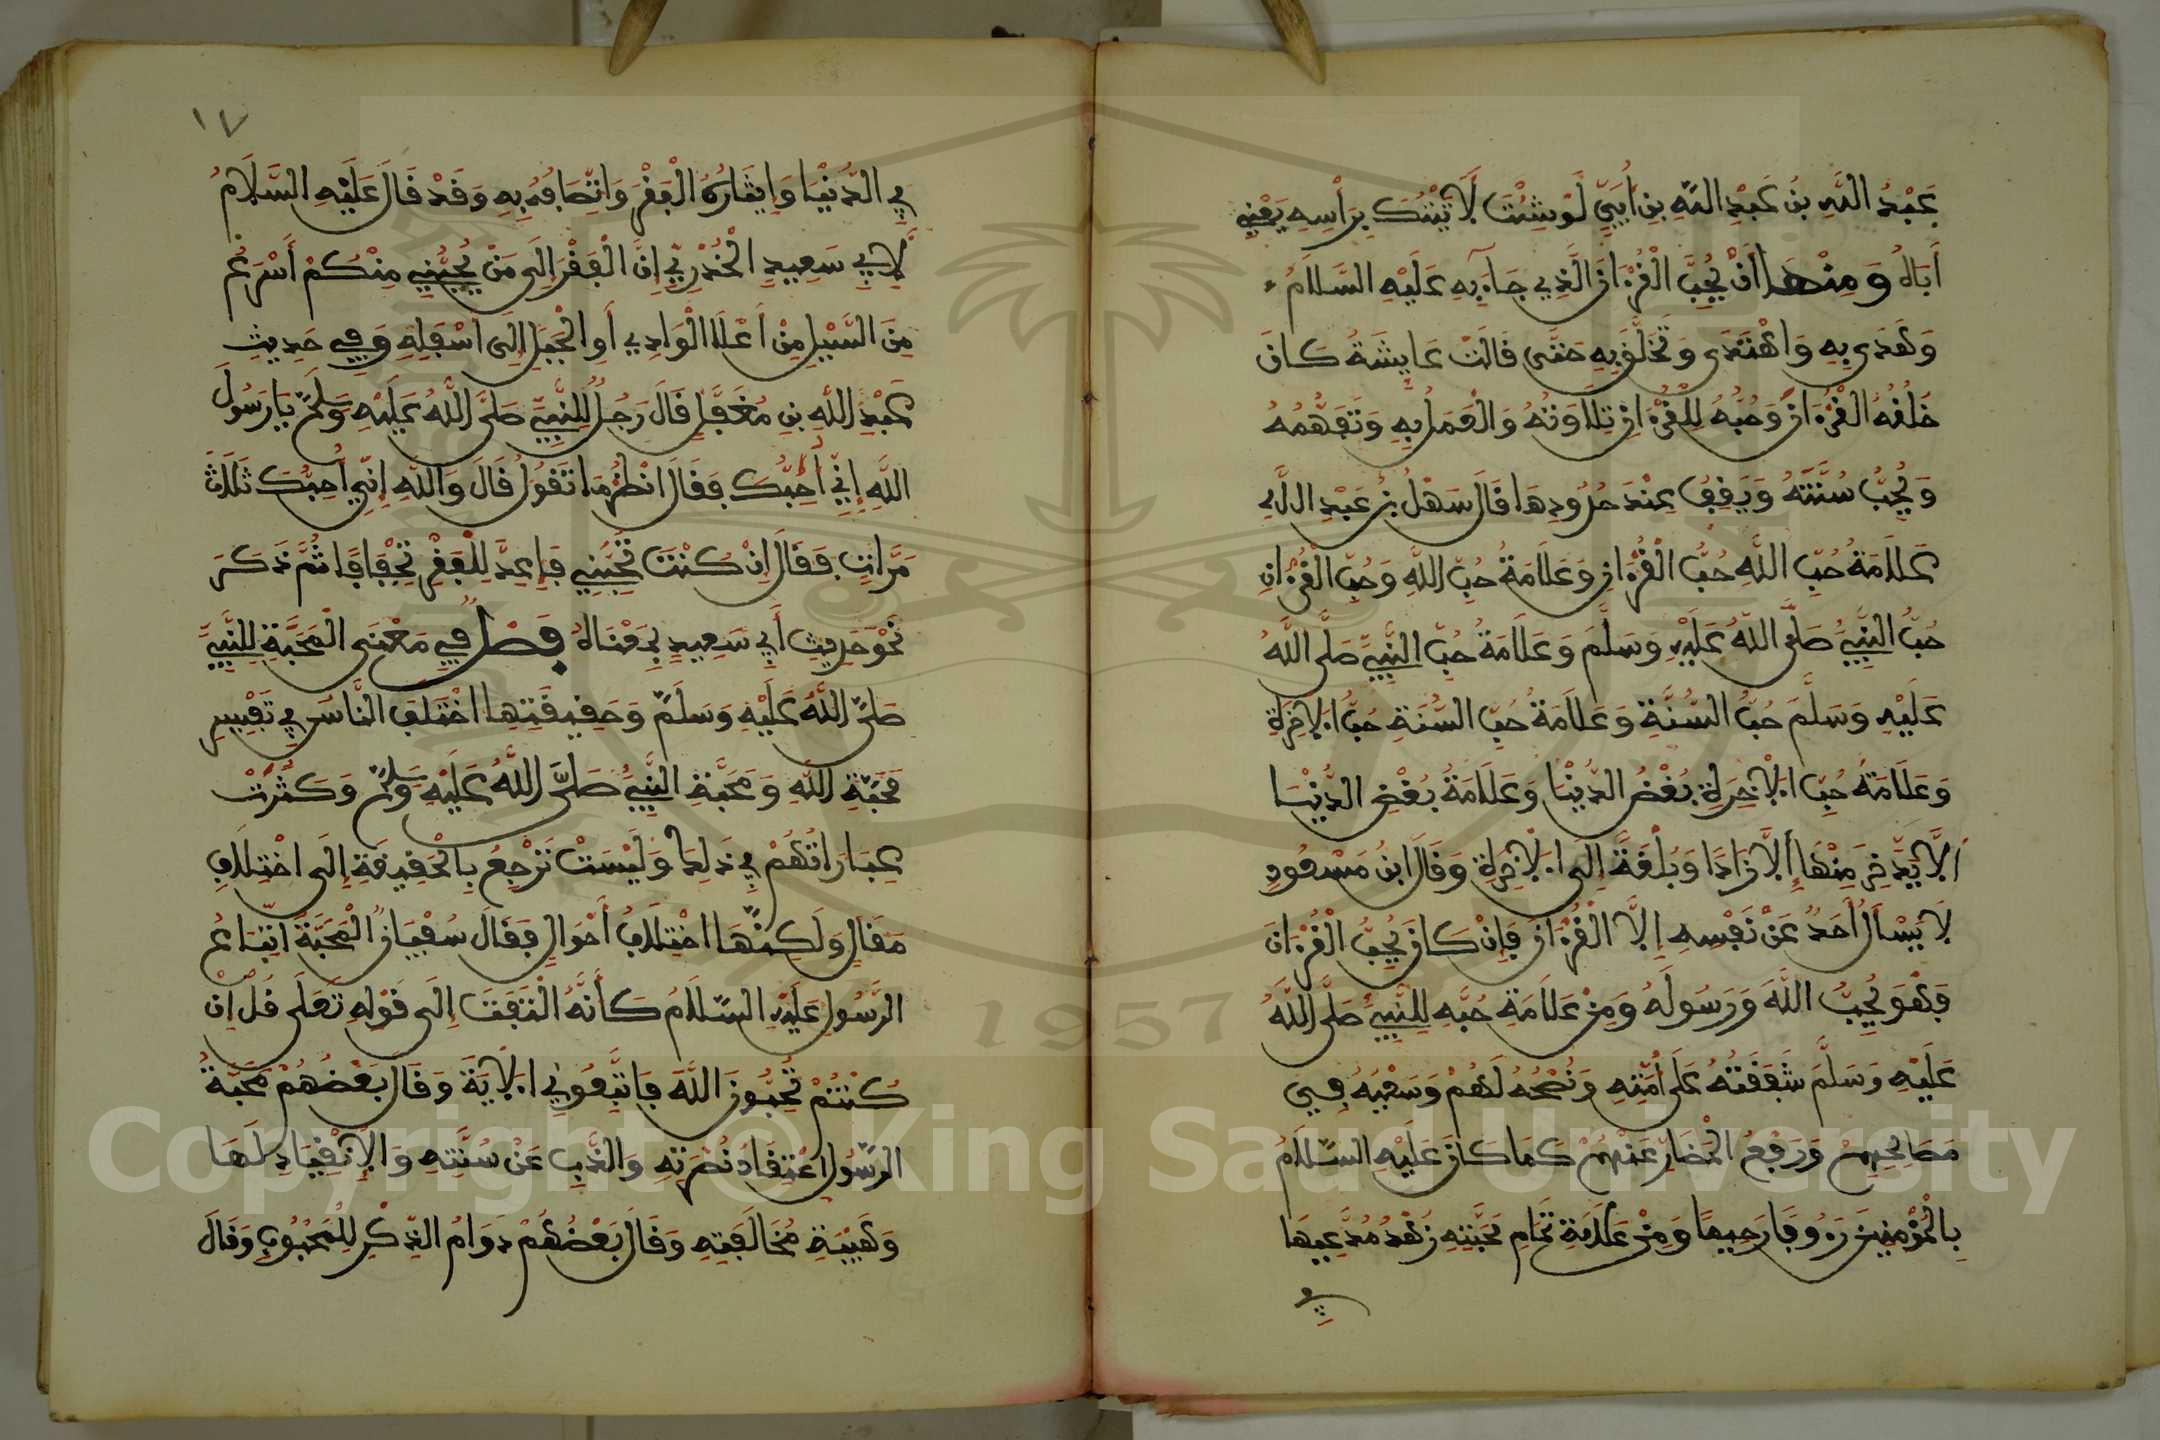 عَبْدُ اللَّهِ بْنُ عَبْدِ اللَّهِ بْنِ أُبَيٍّ لَوْ شِئْتَ لَأَتَيْتُكَ بِرَأْسِهِ يَعْنِي
أَبَاهُ وَمِنْهَا أَنْ يُحِبَّ الْقُرْءَانَ الَّذِي جَاءَ بِهِ عَلَيْهِ السَّلَامُ
وَهَدَى بِهِ وَاهْتَدَى وَتَخَلَّقَ بِهِ حَتَّى قَالَتْ عَايِشَةُ كَانَ
خُلُقُهُ الْقُرْءَانَ وَحُبُّهُ لِلْقُرْءَانِ تِلَاوَتُهُ وَالْعَمَلُ بِهِ وَتَفَهُّمُهُ
وَيُحِبُّ سُنَّتَهُ وَيَقِفُ عِنْدَ حُدُودِهَا قَالَ سَهْلُ بْنُ عَبْدِ اللَّهِ
عَلَامَةُ حُبِّ اللَّهِ حُبُّ الْقُرْءَانِ وَعَلَامَةُ حُبِّ اللَّهِ وَحُبِّ الْقُرْءَانِ
حُبُّ النَّبِيِّ صَلَّى اللَّهُ عَلَيْهِ وَسَلَّمَ وَعَلَامَةُ حُبِّ النَّبِيِّ صَلَّى اللَّهُ
عَلَيْهِ وَسَلَّمَ حُبُّ السُّنَّةِ وَعَلَامَةُ حُبِّ السُّنَّةِ حُبُّ الْآخِرَةِ
وَعَلَامَةُ حُبِّ الْآخِرَةِ بُغْضُ الدُّنْيَا وَعَلَامَةُ بُغْضِ الدُّنْيَا
أَلَّا يَدَّخِرَ مِنْهَا إِلَّا زَادًا وَبُلْغَةً إِلَى الْآخِرَةِ وَقَالَ ابْنُ مَسْعُودٍ
لَا يَسْأَلُ أَحَدٌ عَنْ نَفْسِهِ إِلَّا الْقُرْءَانَ فَإِنْ كَانَ يُحِبُّ الْقُرْءَانَ
فَهُوَ يُحِبُّ اللَّهَ وَرَسُولَهُ وَمِنْ عَلَامَةِ حُبِّهِ لِلنَّبِيِّ صَلَّى اللَّهُ
عَلَيْهِ وَسَلَّمَ شَفَقَتُهُ عَلَى أُمَّتِهِ وَنُصْحُهُ لَهُمْ وَسَعْيُهُ فِي
مَصَالِحِهِمْ وَرَفْعُ الْمَضَارِّ عَنْهُمْ كَمَا كَانَ عَلَيْهِ السَّلَامُ
بِالْمُؤْمِنِينَ رَءُوفًا رَحِيمًا وَمِنْ عَلَامَةِ تَمَامِ مَحَبَّتِهِ زُهْدُ مُدَّعِيهَا
في
١٧
فِي الدُّنْيَا وَإِيثَارُهُ الْفَقْرَ وَاتِّصَافُهُ بِهِ وَقَدْ قَالَ عَلَيْهِ السَّلَامُ
لِأَبِي سَعِيدٍ الْخُدْرِيِّ إِنَّ الْفَقْرَ إِلَى مَنْ يُحِبُّنِي مِنْكُمْ أَسْرَعُ
مِنَ السَّيْلِ مِنْ أَعْلَا الْوَادِي أَوِ الْجَبَلِ إِلَى أَسْفَلِهِ وَفِي حَدِيثِ
عَبْدِ اللَّهِ بْنِ مُغَفَّلٍ قَالَ رَجُلٌ لِلنَّبِيِّ صَلَّى اللَّهُ عَلَيْهِ وَسَلَّمَ يَا رَسُولَ
اللَّهِ إِنِّي أُحِبُّكَ فَقَالَ انْظُرْ مَا تَقُولُ قَالَ وَاللَّهِ إِنِّي أُحِبُّكَ ثَلَاثَ
مَرَّاتٍ فَقَالَ إِنْ كُنْتَ تُحِبُّنِي فَأَعِدَّ لِلْفَقْرِ تِجْفَافًا ثُمَّ ذَكَرَ
نَحْوَ حَدِيثِ أَبِي سَعِيدٍ بِمَعْنَاهُ فَصْلٌ فِي مَعْنَى الْمَحَبَّةِ لِلنَّبِيِّ
صَلَّى اللَّهُ عَلَيْهِ وَسَلَّمَ وَحَقِيقَتِهَا اخْتَلَفَ النَّاسُ فِي تَفْسِيرِ
مَحَبَّةِ اللَّهِ وَمَحَبَّةِ النَّبِيِّ صَلَّى اللَّهُ عَلَيْهِ وَسَلَّمَ وَكَثُرَتْ
عِبَارَاتُهُمْ فِي ذَلِكَ وَلَيْسَتْ تَرْجِعُ بِالْحَقِيقَةِ إِلَى اخْتِلَافِ
مَقَالٍ وَلَكِنَّهَا اخْتِلَافُ أَحْوَالٍ فَقَالَ سُفْيَانُ الْمَحَبَّةُ اتِّبَاعُ
الرَّسُولِ عَلَيْهِ السَّلَامُ كَأَنَّهُ الْتَفَتَ إِلَى قَوْلِهِ تَعَلَى قُلْ إِنْ
كُنْتُمْ تُحِبُّونَ اللَّهَ فَاتَّبِعُونِي الْآيَةَ وَقَالَ بَعْضُهُمْ مَحَبَّةُ
الرَّسُولِ اعْتِقَادُ نُصْرَتِهِ وَالذَّبِّ عَنْ سُنَّتِهِ وَالْإِنْقِيَادِ لَهَا
وَهَيْبَةِ مُخَالَفَتِهِ وَقَالَ بَعْضُهُمْ دَوَامُ الذِّكْرِ لِلْمَحْبُوبِ وَقَالَ
1957
Copyright © King Saud University